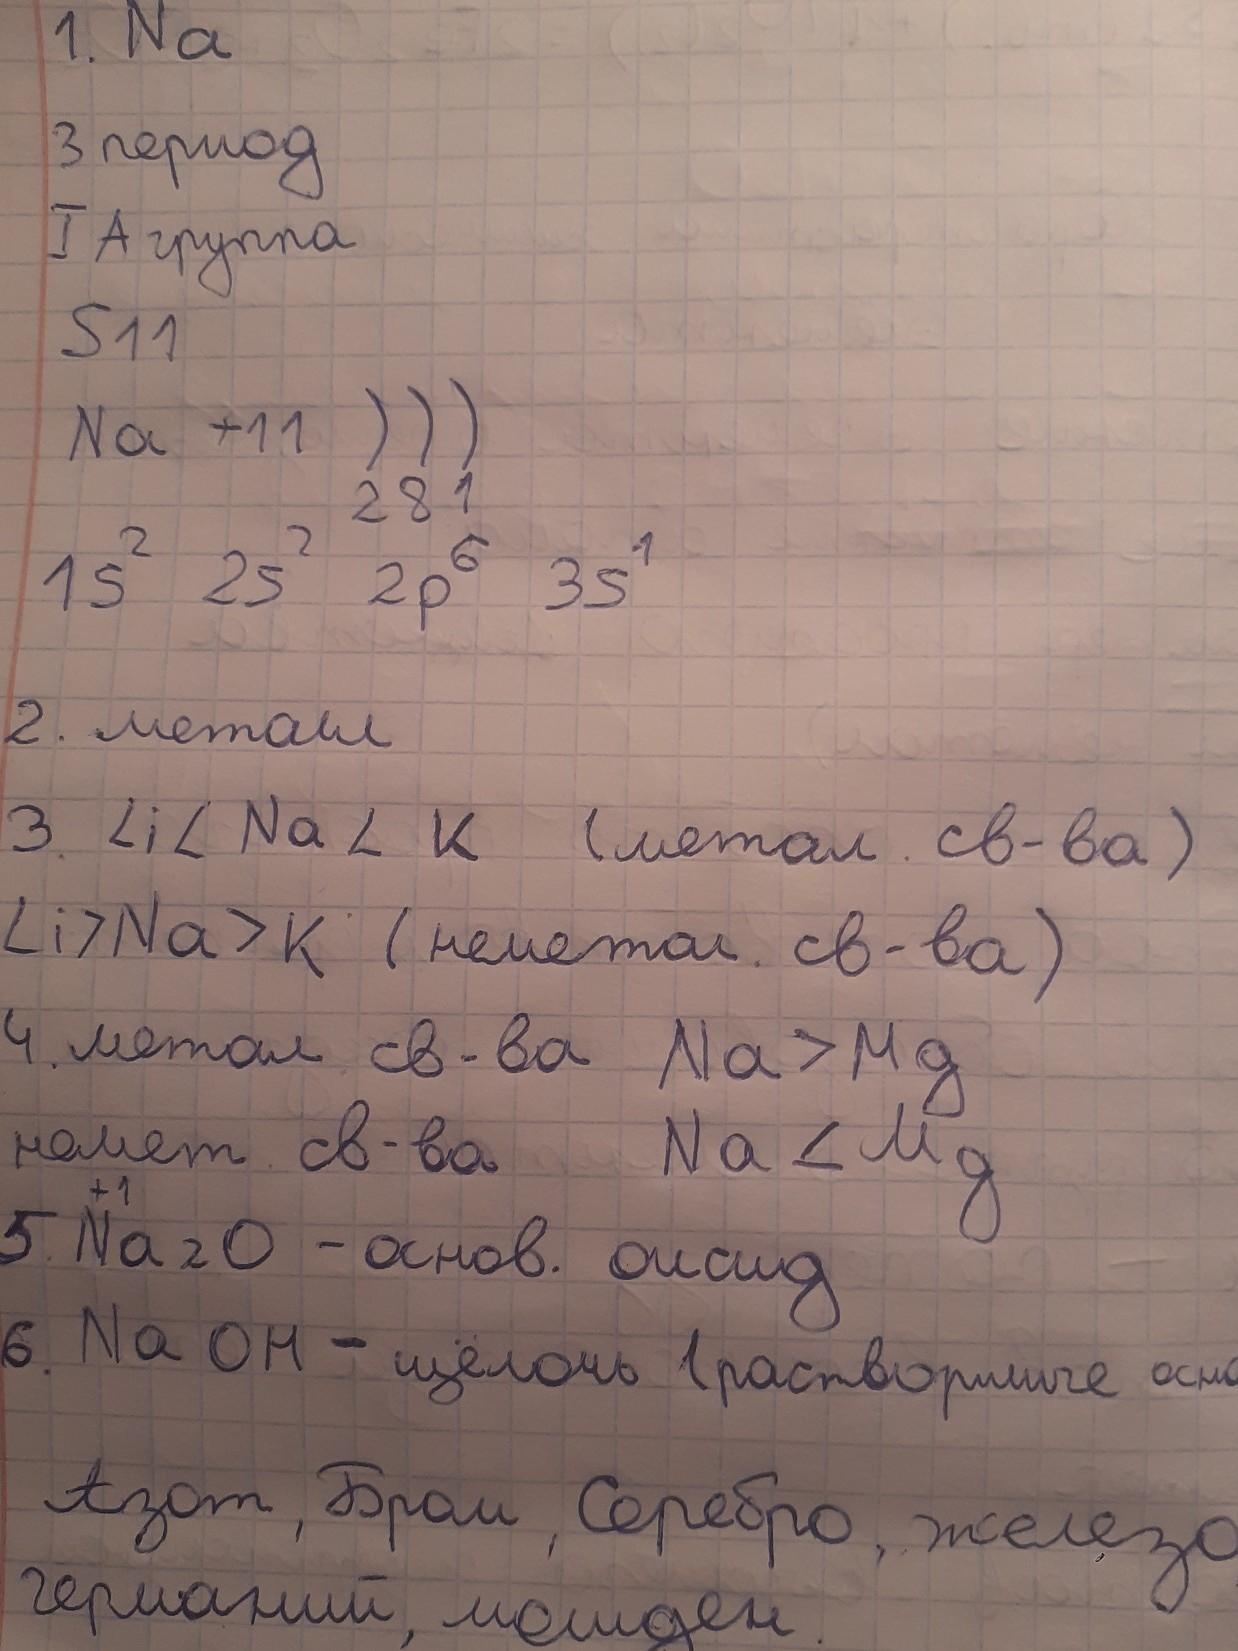 1. Na
3 период
I A группа
S11
Na +11 )))
2 8 1
1s² 2s² 2p⁶ 3s¹
2. металл
3. Li < Na < K (метал. св-ва)
Li > Na > K (неметал. св-ва)
4. метал св-ва Na > Mg
немет. св-ва Na < Mg
+1
5. Na₂O - основ. оксид
6. NaOH - щёлочь (растворимые осно
Азот, Бром, Серебро, железо,
германий, молибден.